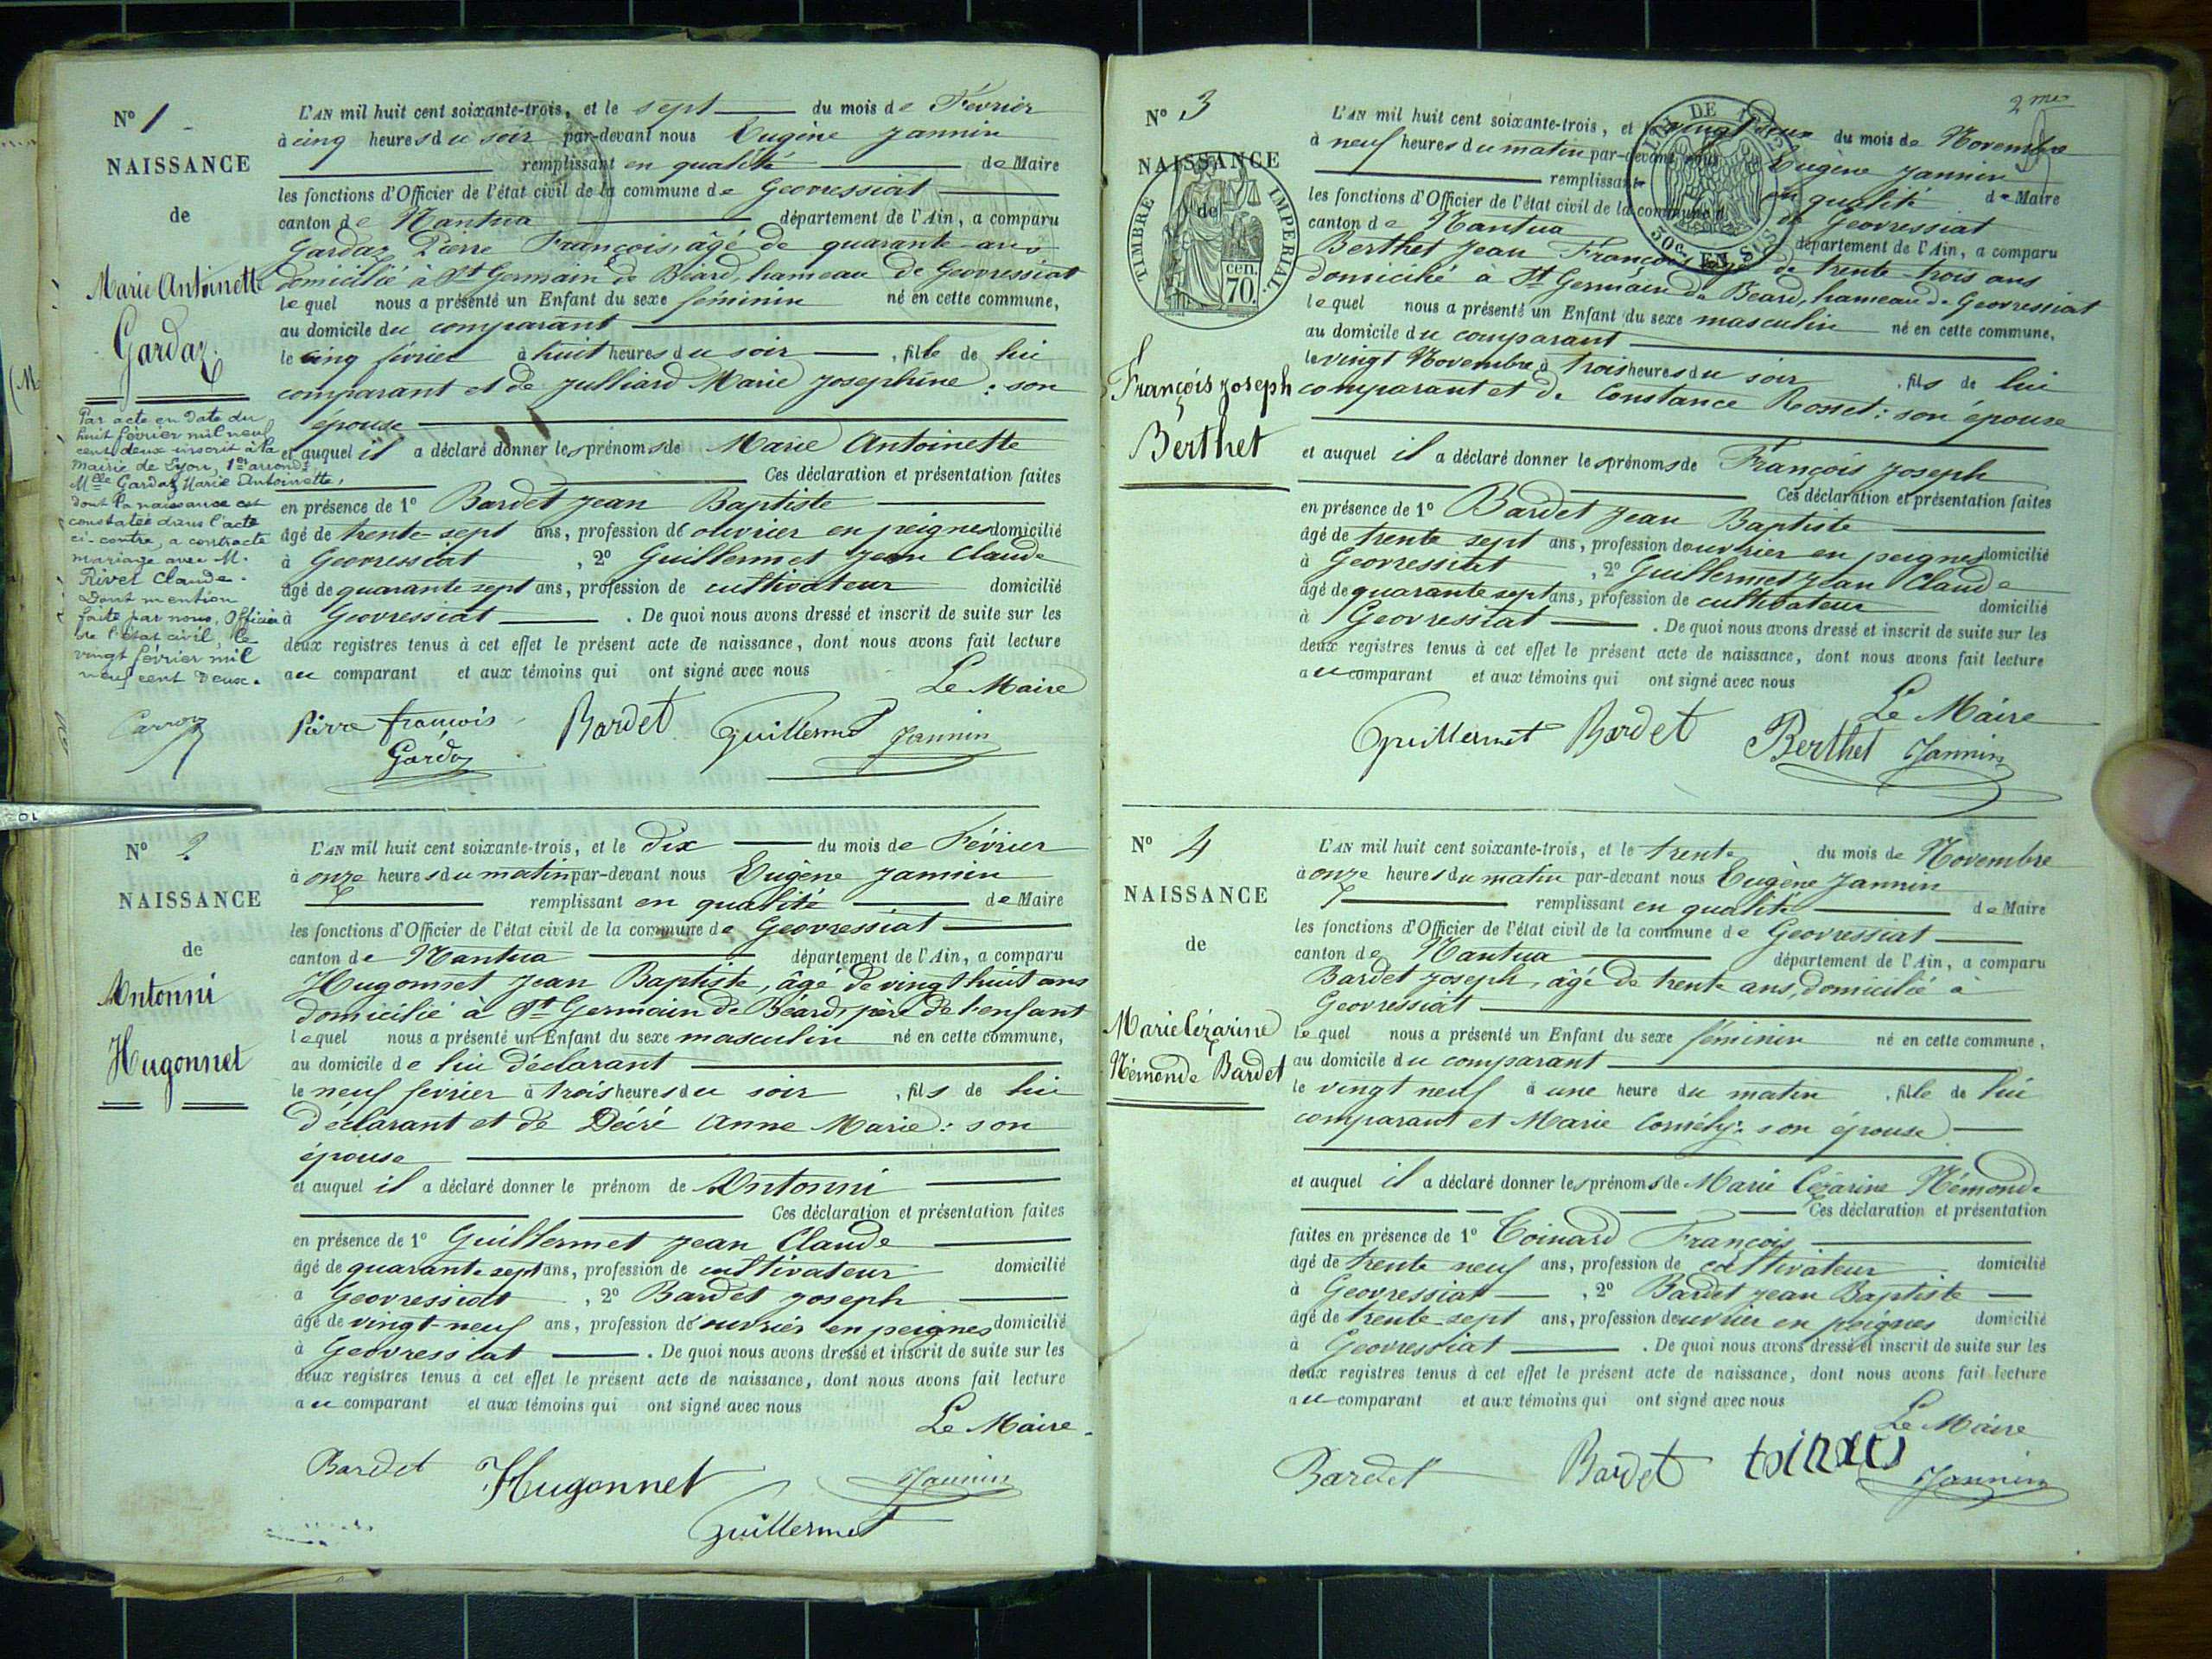 N° 1
NAISSANCE
de
Marie Antoinette
Gardaz
Par acte en date du
huit février mil neuf
cent deux inscrit à la
mairie de Lyon, 1er arrondt
Mlle Gardaz Marie Antoinette,
dont la naissance est
constatée dans l'acte
ci-contre, a contracté
mariage avec M.
Rivet Claude.
Dont mention
faite par nous, Officier
de l'état civil, le
vingt février mil
neuf cent deux.
L'AN mil huit cent soixante-trois, et le sept du mois de Février
à cinq heures du soir par-devant nous Eugène Jannin
remplissant en qualité de Maire
les fonctions d'Officier de l'état civil de la commune de Geovressiat
canton de Nantua département de l'Ain, a comparu
Gardaz Pierre François, âgé de quarante ans
domicilié à St Germain de Béard, hameau de Geovressiat
lequel nous a présenté un Enfant du sexe féminin né en cette commune,
au domicile du comparant
le cinq février à huit heures du soir, fille de lui
comparant et de Julliard Marie Josephine : son
épouse
et auquel il a déclaré donner les prénoms de Marie Antoinette
Ces déclaration et présentation faites
en présence de 1° Bardet Jean Baptiste
âgé de trente-sept ans, profession de ouvrier en peignes domicilié
à Geovressiat, 2° Guillermet Jean Claude
âgé de quarante sept ans, profession de cultivateur domicilié
à Geovressiat. De quoi nous avons dressé et inscrit de suite sur les
deux registres tenus à cet effet le présent acte de naissance, dont nous avons fait lecture
au comparant et aux témoins qui ont signé avec nous
Le Maire
Pierre françois Gardaz Bardet Guillermet Jannin
N° 2
NAISSANCE
de
Antonni
Hugonnet
L'AN mil huit cent soixante-trois, et le dix du mois de Février
à onze heures du matin par-devant nous Eugène Jannin
remplissant en qualité de Maire
les fonctions d'Officier de l'état civil de la commune de Geovressiat
canton de Nantua département de l'Ain, a comparu
Hugonnet Jean Baptiste, âgé de vingt huit ans
domicilié à St Germain de Béard, père de l'enfant
lequel nous a présenté un Enfant du sexe masculin né en cette commune,
au domicile de lui déclarant
le neuf février à trois heures du soir, fils de lui
déclarant et de Décré Anne Marie : son
épouse
et auquel il a déclaré donner le prénom de Antonni
Ces déclaration et présentation faites
en présence de 1° Guillermet Jean Claude
âgé de quarante sept ans, profession de cultivateur domicilié
à Geovressiat, 2° Bardet Joseph
âgé de vingt-neuf ans, profession de ouvrier en peignes domicilié
à Geovressiat. De quoi nous avons dressé et inscrit de suite sur les
deux registres tenus à cet effet le présent acte de naissance, dont nous avons fait lecture
au comparant et aux témoins qui ont signé avec nous
Le Maire.
Bardet Hugonnet Jannin
Guillermet
2me
N° 3
NAISSANCE
de
TIMBRE IMPERIAL
cen.
70.
François Joseph
Berthet
L'AN mil huit cent soixante-trois, et le vingt deux du mois de Novembre
à neuf heures du matin par-devant nous Eugène Jannin
remplissant en qualité de Maire
les fonctions d'Officier de l'état civil de la commune de Geovressiat
canton de Nantua département de l'Ain, a comparu
Berthet Jean François, âgé de trente-trois ans
domicilié à St Germain de Béard, hameau de Geovressiat
lequel nous a présenté un Enfant du sexe masculin né en cette commune,
au domicile du comparant
le vingt Novembre à trois heures du soir, fils de lui
comparant et de Constance Rosset : son épouse
et auquel il a déclaré donner les prénoms de François Joseph
Ces déclaration et présentation faites
en présence de 1° Bardet Jean Baptiste
âgé de trente sept ans, profession de ouvrier en peignes domicilié
à Geovressiat, 2° Guillermet Jean Claude
âgé de quarante sept ans, profession de cultivateur domicilié
à Geovressiat. De quoi nous avons dressé et inscrit de suite sur les
deux registres tenus à cet effet le présent acte de naissance, dont nous avons fait lecture
au comparant et aux témoins qui ont signé avec nous
Le Maire
Guillermet Bardet Berthet Jannin
N° 4
NAISSANCE
de
Marie Cézarine
Némonde Bardet
L'AN mil huit cent soixante-trois, et le trente du mois de Novembre
à onze heures du matin par-devant nous Eugène Jannin
remplissant en qualité de Maire
les fonctions d'Officier de l'état civil de la commune de Geovressiat
canton de Nantua département de l'Ain, a comparu
Bardet Joseph, âgé de trente ans, domicilié à
Geovressiat
lequel nous a présenté un Enfant du sexe féminin né en cette commune,
au domicile du comparant
le vingt neuf à une heure du matin, fille de lui
comparant et Marie Comély : son épouse
et auquel il a déclaré donner les prénoms de Marie Cézarine Némonde
Ces déclaration et présentation
faites en présence de 1° Toinard François
âgé de trente neuf ans, profession de cultivateur domicilié
à Geovressiat, 2° Bardet Jean Baptiste
âgé de trente-sept ans, profession de ouvrier en peignes domicilié
à Geovressiat. De quoi nous avons dressé et inscrit de suite sur les
deux registres tenus à cet effet le présent acte de naissance, dont nous avons fait lecture
au comparant et aux témoins qui ont signé avec nous
Le Maire
Bardet Bardet Jannin